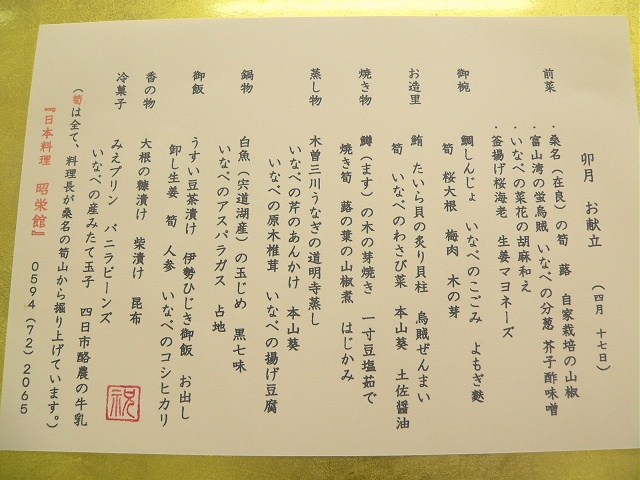 卯月　お献立　（四月　十七日）
前菜　・桑名（在良）の筍　蕗　自家栽培の山椒
・富山湾の蛍烏賊　いなべの分葱　芥子酢味噌
・いなべの菜花の胡麻和え
・釜揚げ桜海老　生姜マヨネーズ
御椀　鯛しんじょ　いなべのこごみ　よもぎ麩
筍　桜大根　梅肉　木の芽
お造里　鮪　たいら貝の炙り貝柱　烏賊ぜんまい
筍　いなべのわさび菜　本山葵　土佐醤油
焼き物　鱒（ます）の木の芽焼き　一寸豆塩茹で
焼き筍　蕗の葉の山椒煮　はじかみ
蒸し物　木曽三川うなぎの道明寺蒸し
いなべの芹のあんかけ　本山葵
いなべの原木椎茸　いなべの揚げ豆腐
鍋物　白魚（宍道湖産）の玉じめ　黒七味
いなべのアスパラガス　占地
御飯　うすい豆茶漬け　伊勢ひじき御飯　お出し
卸し生姜　筍　人参　いなべのコシヒカリ
香の物　大根の糠漬け　柴漬け　昆布
冷菓子　みえプリン　バニラビーンズ
いなべの産みたて玉子　四日市酪農の牛乳
（筍は全て、料理長が桑名の筍山から掘り上げています。）
『日本料理　昭栄館』　０５９４（７２）２０６５
祝